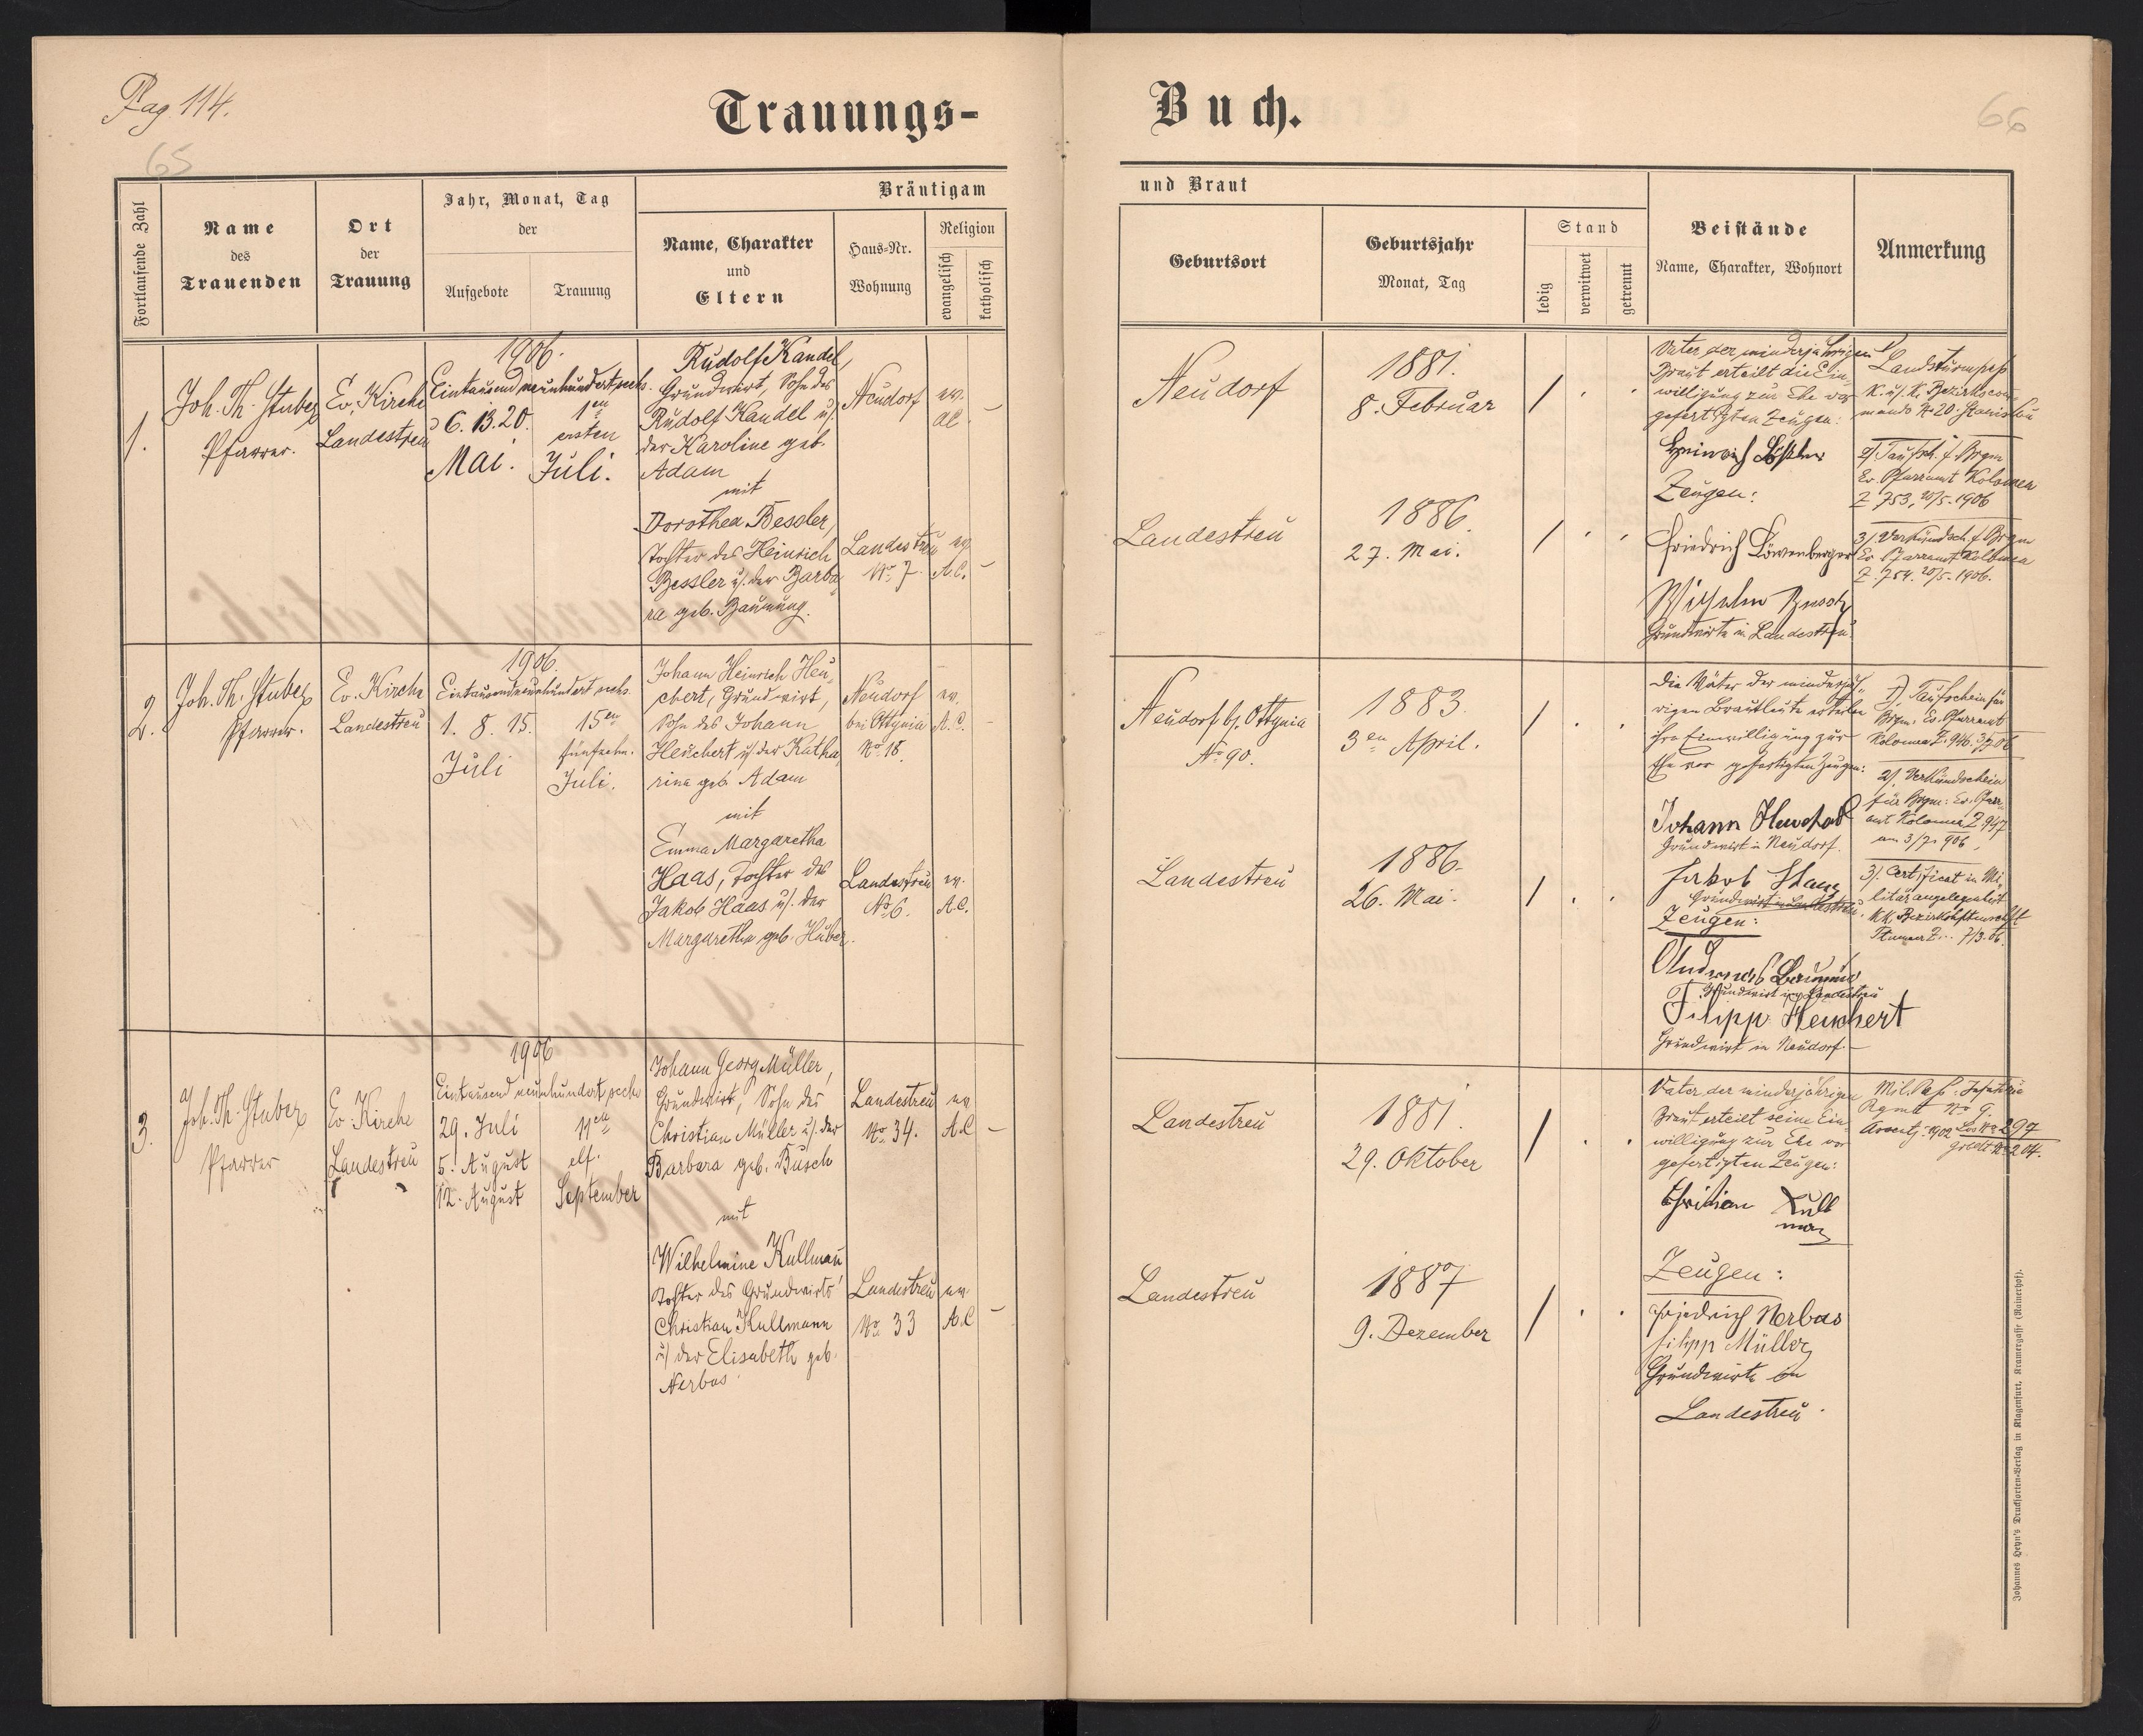 Pag. 114.
65
Trauungs-
Buch.
66
Fortlaufende Zahl
Name
des
Trauenden
Ort
der
Trauung
Jahr, Monat, Tag
der
Aufgebote
Trauung
Bräutigam
Name, Charakter
und
Eltern
Haus-Nr.
Wohnung
Religion
evangelisch
katholisch
und Braut
Geburtsort
Geburtsjahr
Monat, Tag
Stand
ledig
verwitwet
getrennt
Beistände
Name, Charakter, Wohnort
Anmerkung
1.
Joh. Th. Stuber
Pfarrer.
Ev. Kirche
Landestreu
1906.
Eintausendneunhundertsechs.
6. 13. 20.
Mai.
1en
ersten
Juli.
Rudolf Kandel,
Grundwirt, Sohn des
Rudolf Kandel u/.
der Karoline geb.
Adam
mit
Dorothea Bessler,
Tochter des Heinrich
Bessler u/. der Barba-
ra geb. Baumung.
Neudorf
ev.
AC.
Landestreu
No 7.
ev.
A.C.
Neudorf
1881.
8. Februar
Landestreu
1886.
27. Mai.
Vater der minderjährigen
Braut erteilt die Ein-
willigung zur Ehe vor
gefertigten Zeugen:
Heinrich Bößler
Zeugen:
Friedrich Löwenberger
Wilhelm Busch
Grundwirte in Landestreu.
Landsturmpaß
K. u/. K. Bezirkscom-
mando No 20. Stanislau
2/ Taufsch. f. Brgm
Ev. Pfarramt Kolomea
Z. 753, 20/5. 1906
3/ Verkündsch. f. Brgm
Ev. Pfarramt Kolomea
Z. 754. 20/5. 1906.
2.
Joh. Th. Stuber
Pfarrer.
Ev. Kirche
Landestreu
1906.
Eintausendneunhundert sechs.
1. 8. 15.
Juli
15en
fünfzehn.
Juli.
Johann Heinrich Heu-
chert, Grundwirt,
Sohn des Johann
Heuchert u/. der Katha-
rina geb. Adam
mit
Emma Margaretha
Haas, Tochter des
Jakob Haas u/. der
Margaretha geb. Huber.
Neudorf
bei Ottynia
No 18.
ev.
A.C.
Landestreu
No 6.
ev.
A.C.
Neudorf b/. Ottynia
No 90.
1883.
3en April.
Landestreu
1886.
26. Mai.
Die Väter der minderjäh-
rigen Brautleute erteilen
ihre Einwilligung zur
Ehe vor gefertigten Zeugen:
Johann Heuchert
Grundwirt in Neudorf.
Jakob Haas
Grundwirt in Landestreu.
Zeugen:
Andreas
Grundwirt in Landestreu
Filipp Heuchert
Grundwirt in Neudorf.
1/. Taufschein für
Brgm: Ev. Pfarramt
Kolomea Z. 946. 3/7 06
2/ Verkündschein
für Brgm: Ev. Pfarr-
amt Kolomea Z 947
am 3/7. 906.
3/. Certificat in Mi-
litärangelegenheit
7/3. 06.
3.
Joh. Th. Stuber
Pfarrer
Ev. Kirche
Landestreu
1906
Eintausend neunhundert sechs
29. Juli
5. August
12. August
11en
elf.
September
Johann Georg Müller,
Grundwirt, Sohn des
Christian Müller u/. der
Barbara geb. Busch
mit
Wilhelmine Kullmann,
Tochter des Grundwirts
Christian Kullmann
u/ der Elisabeth geb.
Nerbas.
Landestreu
No 34.
ev
A.C
Landestreu
No 33
ev
A.C
Landestreu
1881.
29. Oktober
Landestreu
1887
9. Dezember
Vater der minderjährigen
Braut erteilt seine Ein-
willigung zur Ehe vor
gefertigten Zeugen:
Christian Kull
man
Zeugen:
Friedrich Nerbas
Filipp Müller
Grundwirte in
Landestreu.
Mil. Paß: Infanterie
Rgmt No 9.
Assentj. 1902 Los No 297
Grdbl. No 204.
Johannes Heyn's Drucksorten-Verlag in Klagenfurt, Kramergasse (Rainerhof).